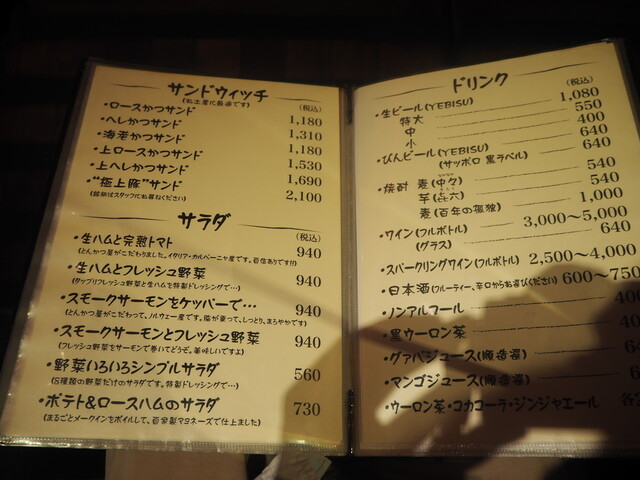 サンドウィッチ
(お土産に最適です)
(税込)
・ロースかつサンド 1,180
・ヘレかつサンド 1,310
・海老かつサンド 1,180
・上ロースかつサンド 1,530
・上ヘレかつサンド 1,690
・"極上豚"サンド 2,100
(銘柄はスタッフにお尋ねください)
サラダ
(税込)
・生ハムと完熟トマト 940
(とんかつ屋がこだわりました。イタリア・カルペーニャ産です。自信あります!!)
・生ハムとフレッシュ野菜 940
(タップリフレッシュ野菜と生ハムを特製ドレッシングで…)
・スモークサーモンをケッパーで… 940
(とんかつ屋がこだわって、ノルウェー産です。脂が乗って、しっとり、まろやかです)
・スモークサーモンとフレッシュ野菜 940
(フレッシュ野菜をサーモンで巻いてどうぞ。美味しいですよ)
・野菜いろいろシンプルサラダ 560
(8種類の野菜だけのサラダです。特製ドレッシングで…)
・ポテト&ロースハムのサラダ 730
(まるごとメークインをボイルして、自家製マヨネーズで仕上ました)
ドリンク
(税込)
・生ビール(YEBISU)
特大 1,080
中 550
小 400
・びんビール(YEBISU) 640
(サッポロ 黒ラベル) 640
・焼酎 麦(中々) 540
芋(㐂六) 540
麦(百年の孤独) 1,000
・ワイン(フルボトル) 3,000〜5,000
(グラス) 640
・スパークリングワイン(フルボトル) 2,500〜4,000
・日本酒(フルーティー、辛口からお選びください) 600〜750
・ノンアルコール
・黒ウーロン茶
・グァバジュース(順造選)
・マンゴジュース(順造選)
・ウーロン茶・コカコーラ・ジンジャエール 各